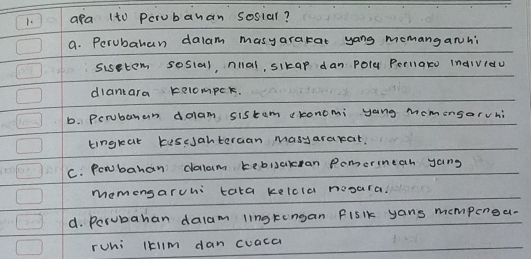 1. apa itu Perubahan sosial?
a. Perubahan dalam masyarakat yang memangaruhi
sisetem sosial, nilai, sikap dan pola Perilaku individu
diantara kelompek.
b. Perubahan dalam sistem ekonomi yang memengaruhi
tingkat kesejahteraan masyarakat.
c. Perubahan dalam kebijakan Pemerintah yang
memengaruhi tata kelola negara.
d. Perubahan dalam lingkungan fisik yang mempenga-
ruhi iklim dan cuaca